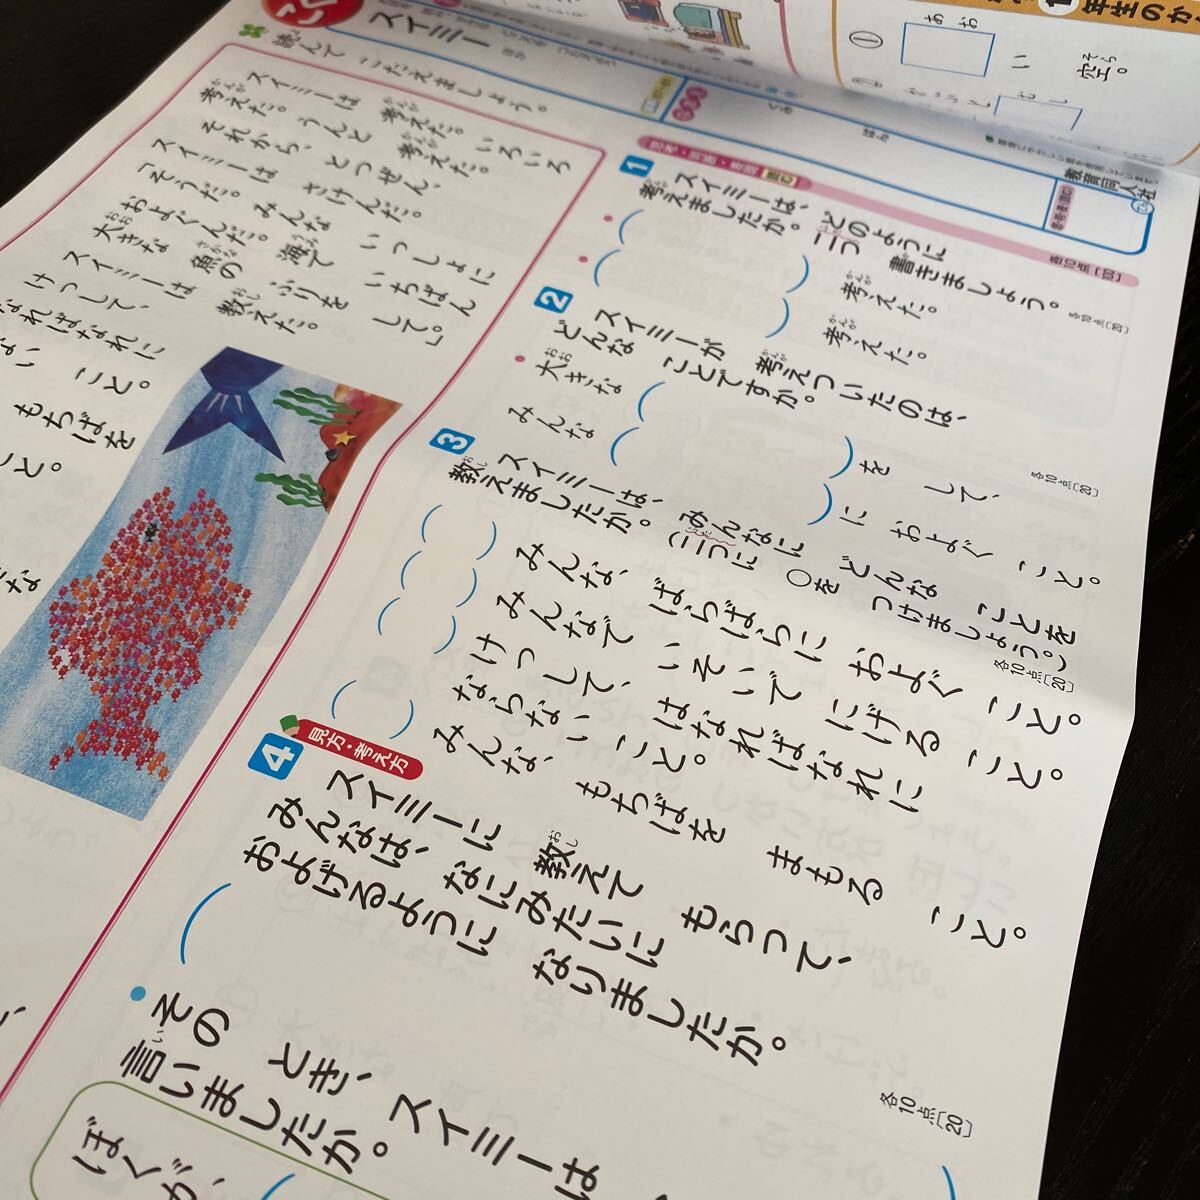 スイミー
読んで こたえましょう。
スイミーは 考えた。いろいろ
考えた。うんと 考えた。
それから、とつぜん、
スイミーは さけんだ。
「そうだ。みんな いっしょに
およぐんだ。海で いちばん
大きな 魚の ふりを して。」
スイミーは 教えた。
けっして、
なればなれに
こと。
もちばを
こと。
教育同人社
思考・判断・表現 読む
各10点〔100〕
1 スイミーは、どのように
考えましたか。二つ 書きましょう。
各10点〔20〕
( ) 考えた。
( ) 考えた。
2 スイミーが 考えついたのは、
どんな ことですか。
各10点〔20〕
大きな ( )を して、
みんな ( )に およぐ こと。
3 スイミーは、みんなに どんな ことを
教えましたか。(二つに ○を つけましょう。)
各10点〔20〕
( ) みんな、ばらばらに およぐ こと。
( ) みんなで いそいで にげる こと。
( ) けっして、はなればなれに
ならない こと。
( ) みんな、もちばを まもる こと。
4 見方・考え方
スイミーに 教えて もらって、
みんなは、なにみたいに
およげるように なりましたか。
各10点〔20〕
( )
その とき、スイミーは
言いましたか。
ぼくが、
1年生のか
① あおい 空。